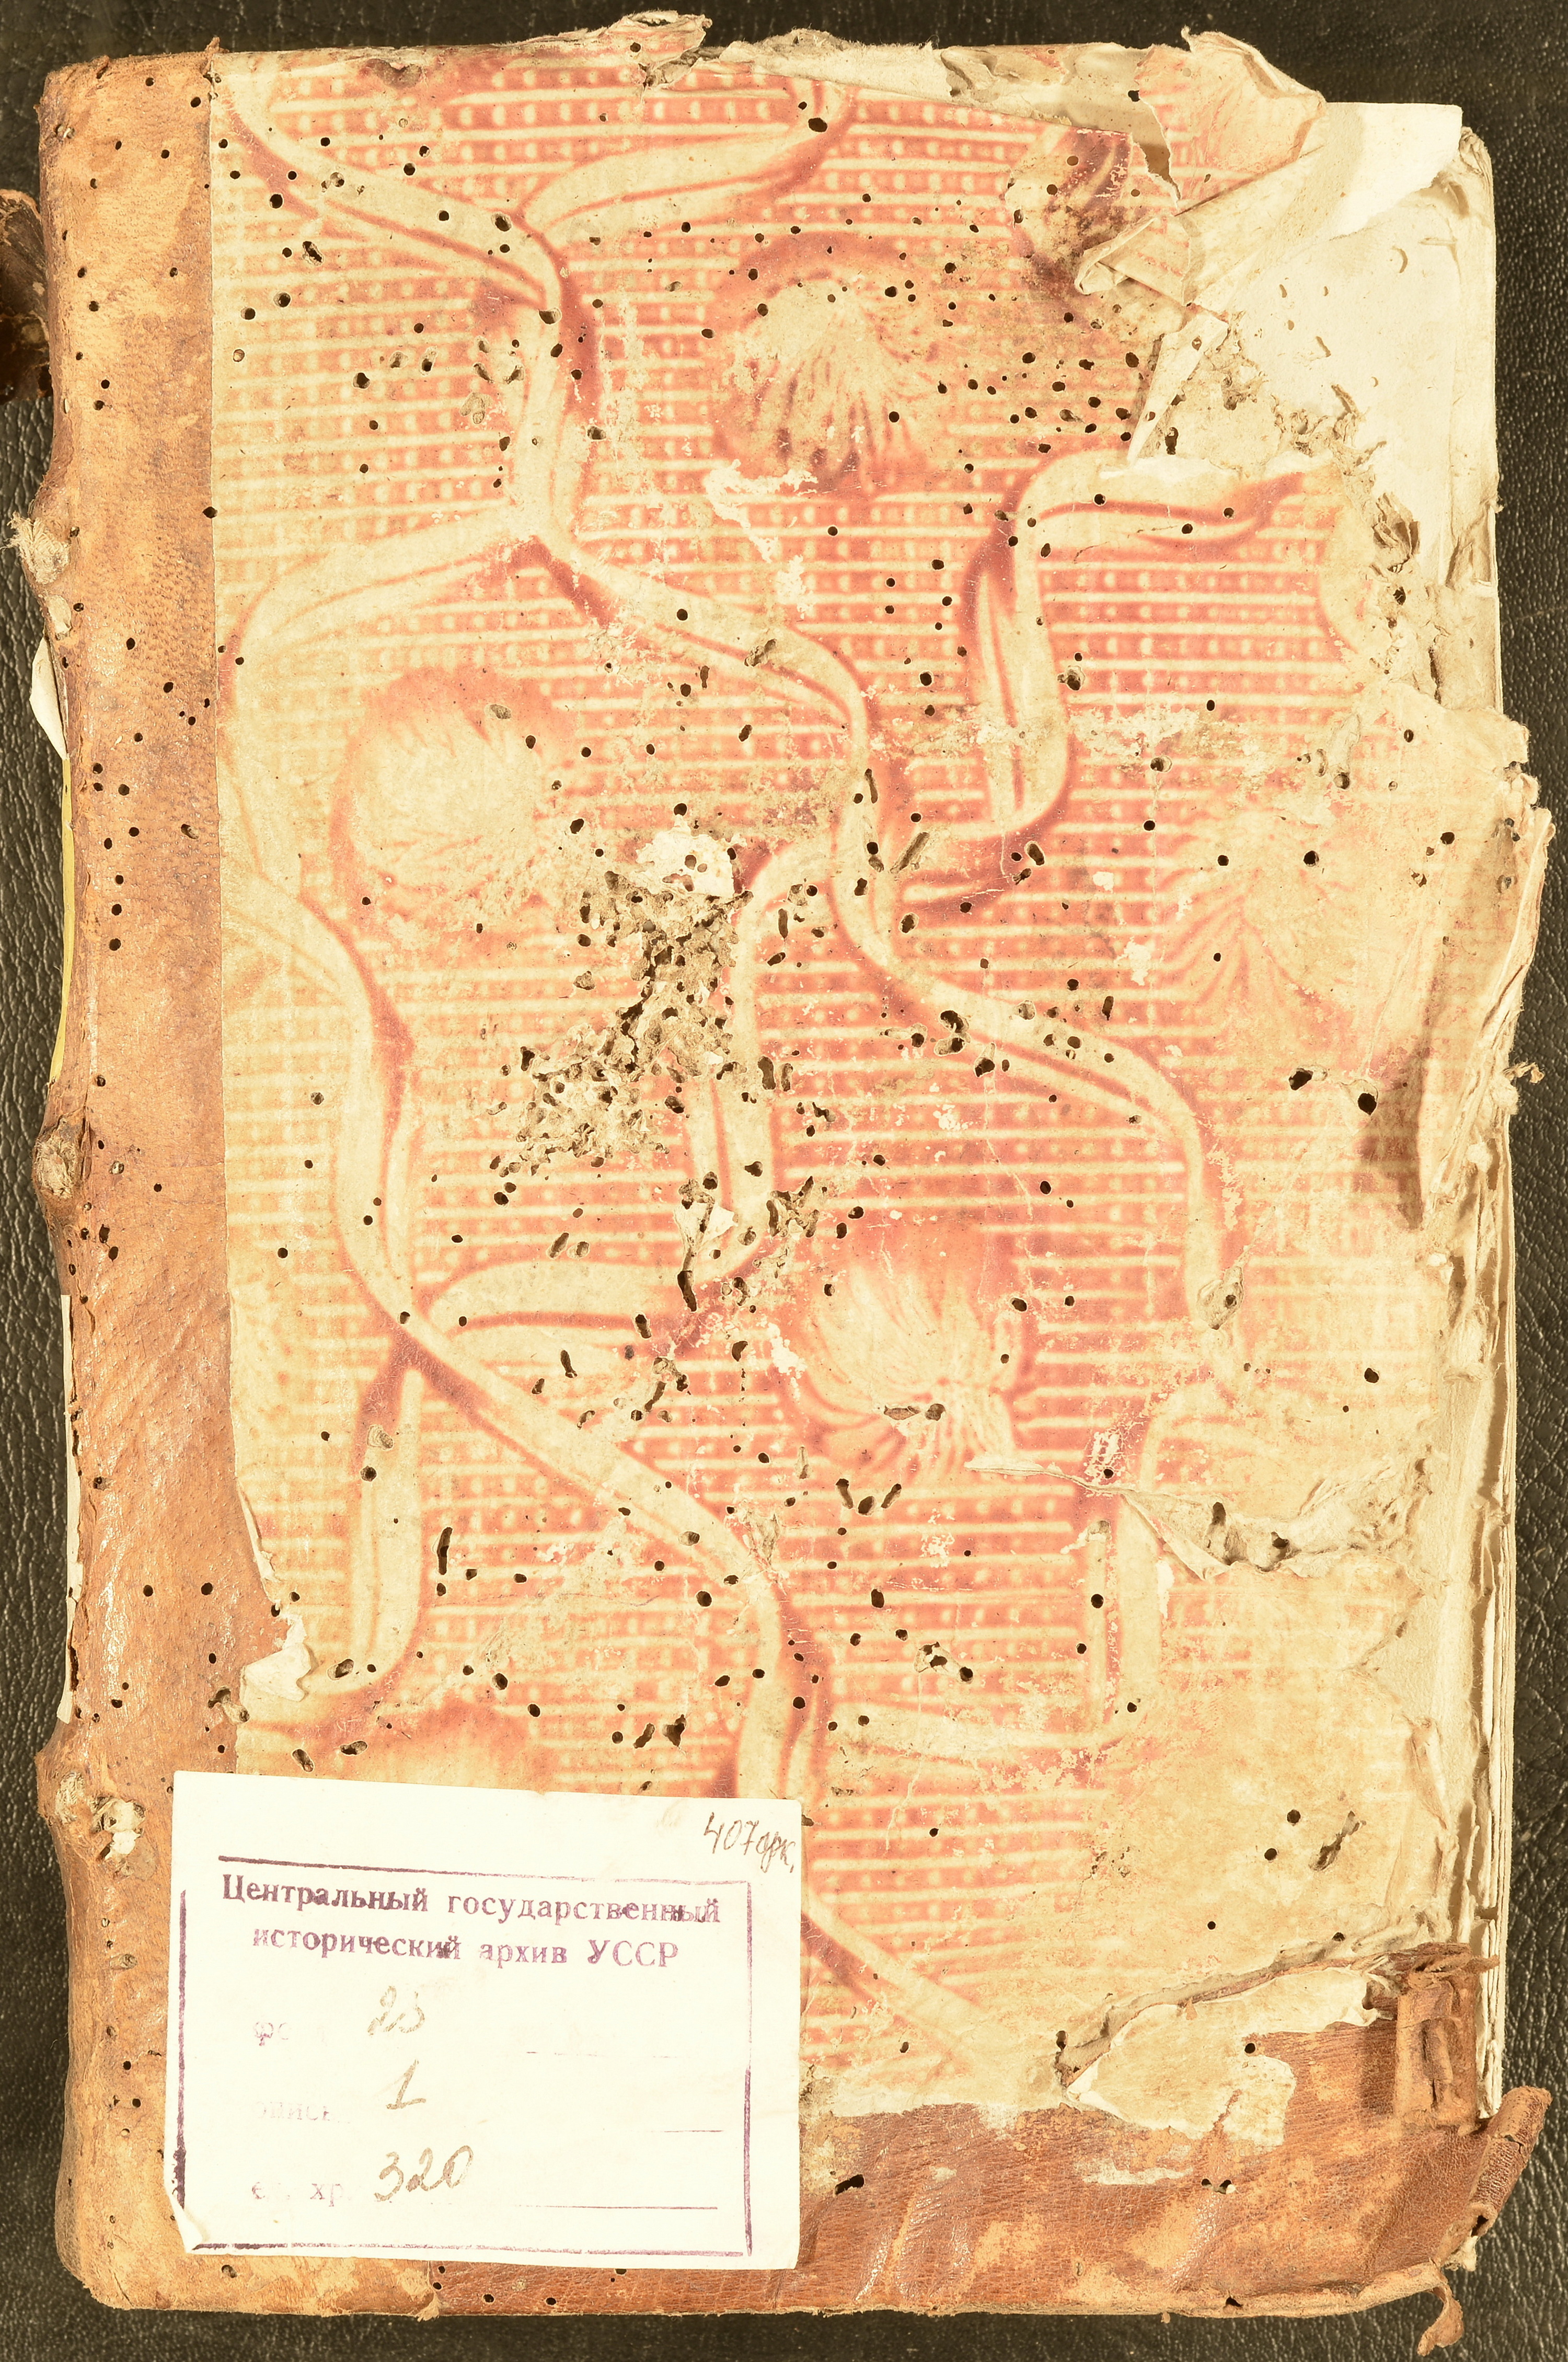 407 арк.
Центральный государственный
исторический архив УССР
фо 25
опись 1
ед. хр. 320